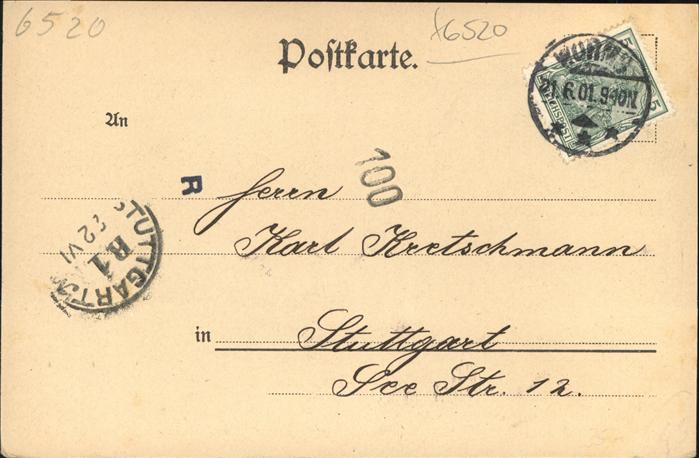 6520
x6520
Postkarte.
WORMS
21.6.01.9-10N.
5
An
R
100
Herrn
Karl Kretschmann
STUTTGART
22 VI
B1
in Stuttgart
See Str. 12.